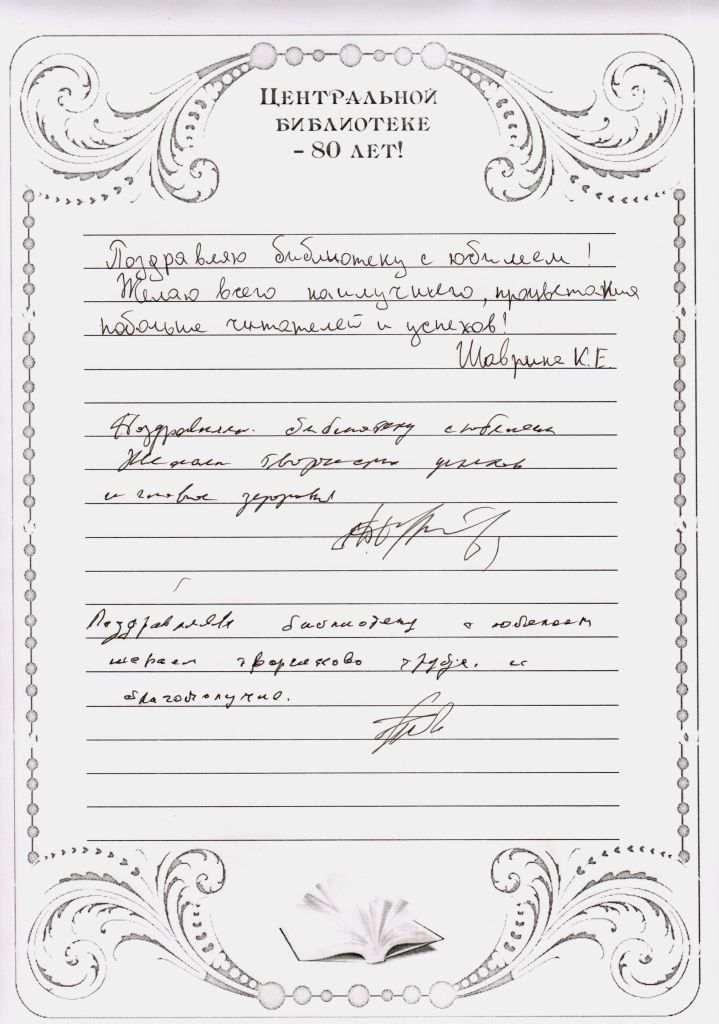 Центральной
библиотеке
- 80 лет!
Поздравляю библиотеку с юбилеем!
Желаю всего наилучшего, процветания
побольше читателей и успехов!
Шаврина К.Е.
Поздравляем библиотеку с юбилеем
Желаем творческих успехов
и здоровья
Поздравляем библиотеку с юбилеем
желаем творческово труда. и
благополучие.